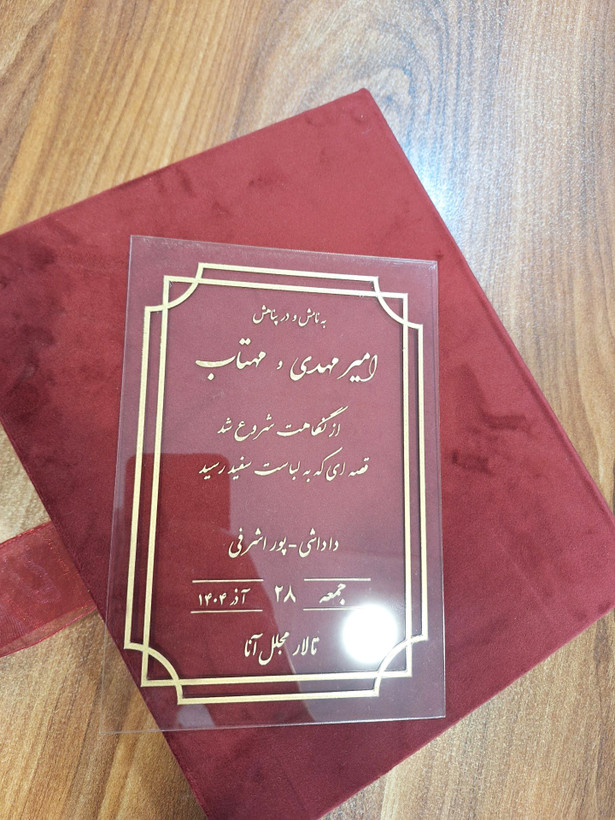 به نامش و در پناهش
امیرمهدی و مهتاب
از نگاهت شروع شد
قصه ای که به لباست سفید رسید
داداشی - پور اشرفی
جمعه ۲۸ آذر ۱۴۰۴
تالار مجلل آنا